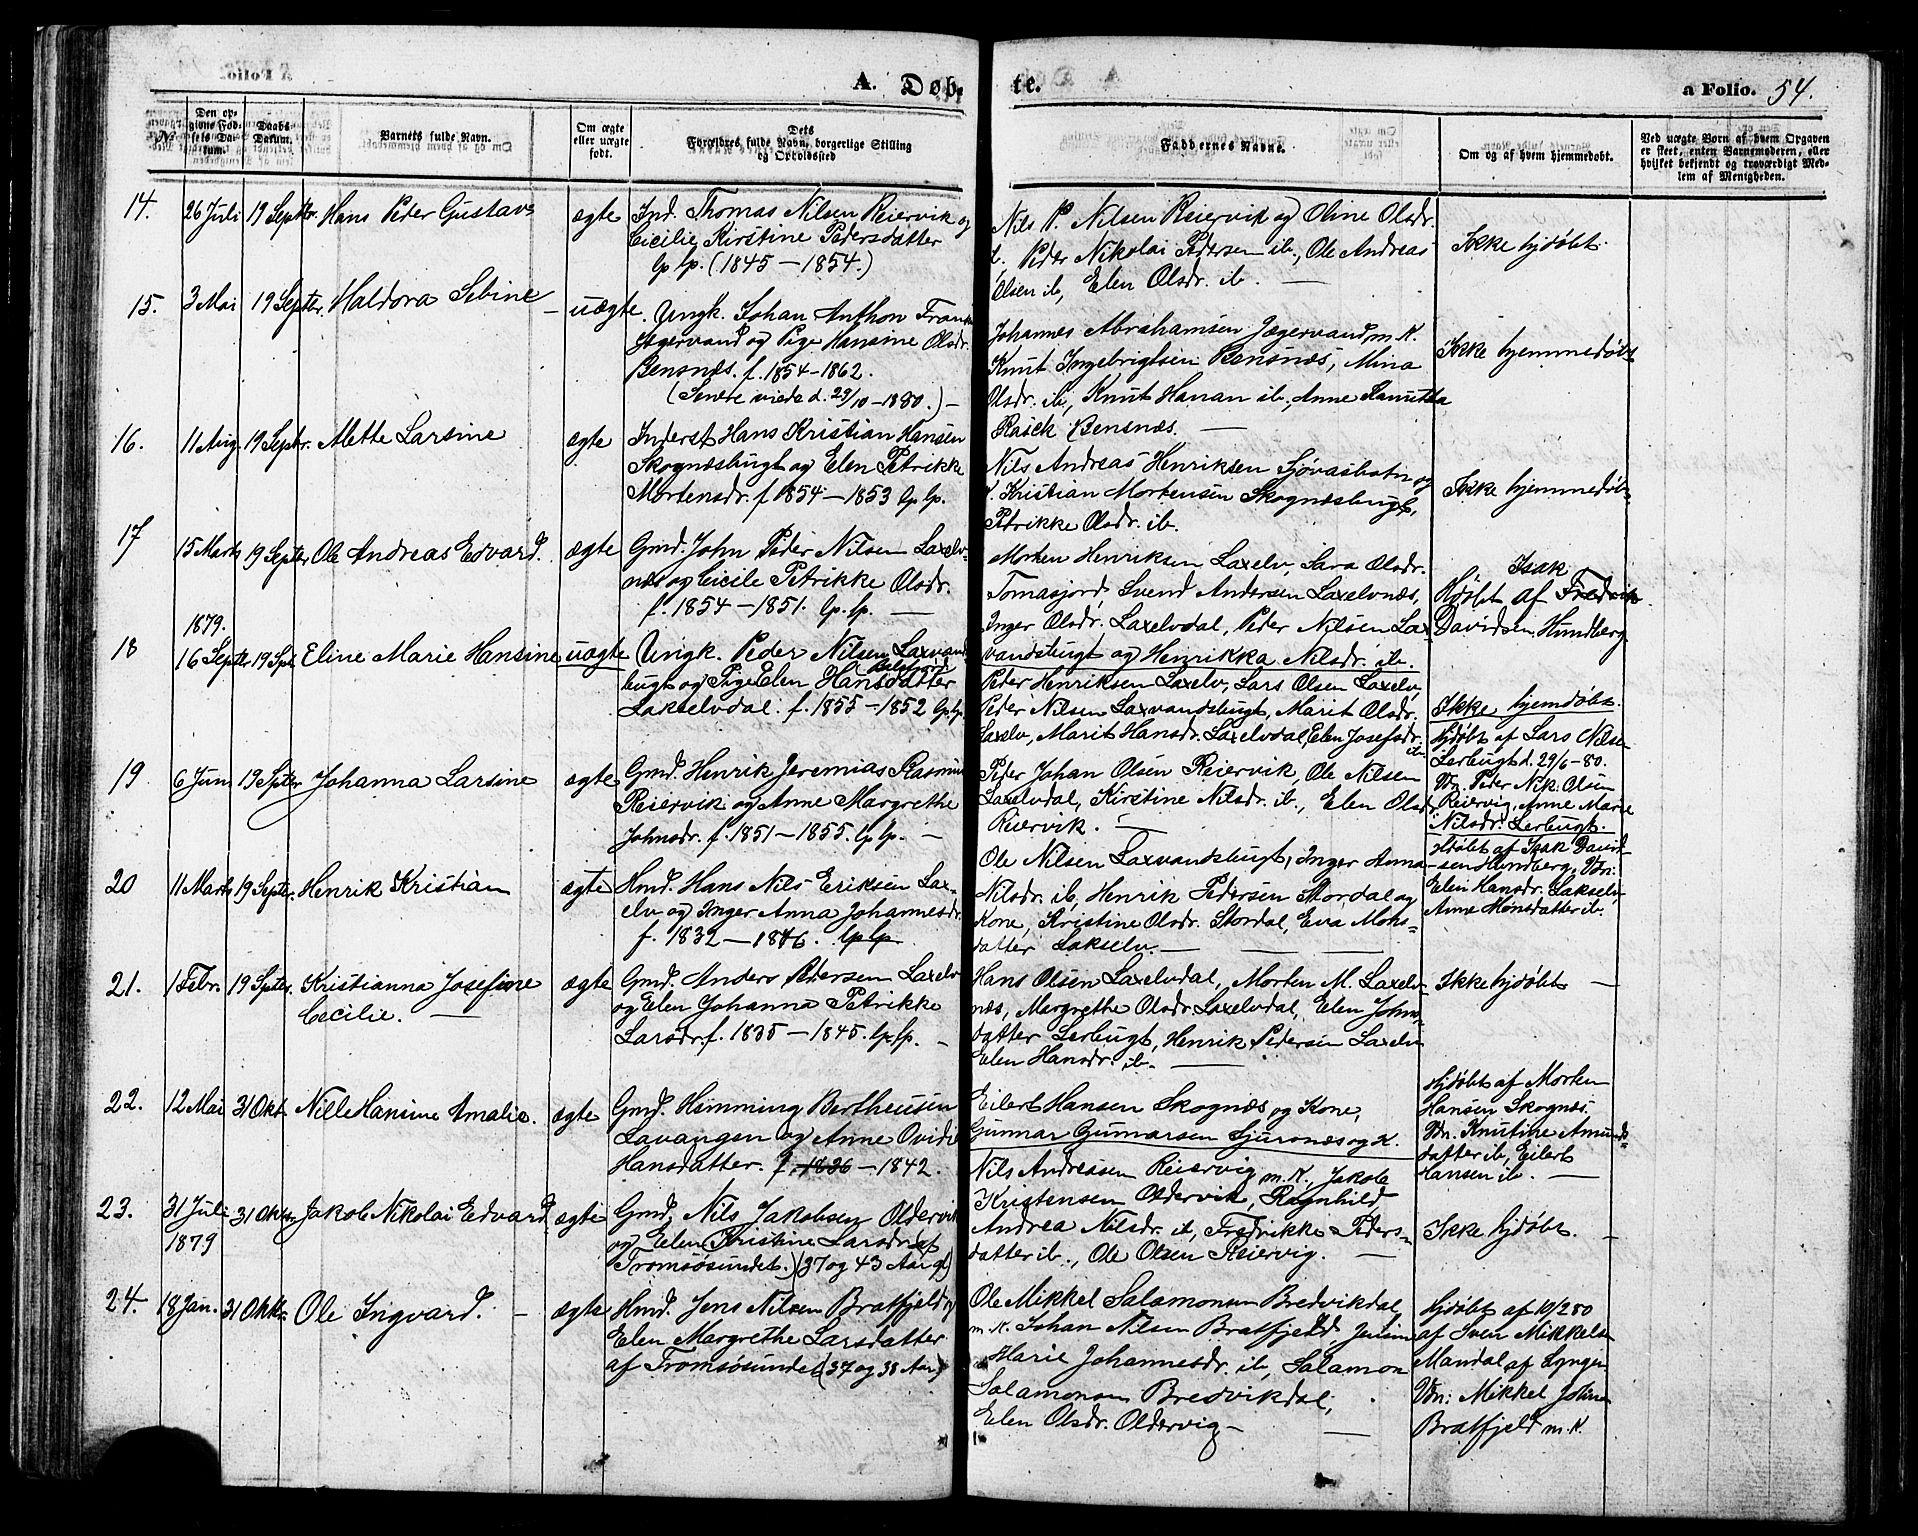 A. Døb-
te.
a Folio. 54.
№
Den op-
givne Fød-
sels Da-
tum.
Daabs-
Datum.
Barnets fulde Navn.
Om ægte
eller uægte
født.
Dets
Forældres fulde Navn, borgerlige Stilling
og Opholdssted
Faddernes Navne.
Om og af hvem hjemmedøbt.
Ved uægte Børn af hvem Opgaven
er skeet, enten Barnemoderen, eller
hvilket bekjendt og troværdigt Med-
lem af Menigheden.
14. 26 Juli 19 Septbr. Hans Peder Gustav ægte
Ind. Thomas Nilsen Reiervik og
Cicilie Kirstine Pedersdatter
lp lp. (1845 – 1854.)
Nils P. Nilsen Reiervik og Oline Olsdr.
d. Peder Nikolai Pedersen ib., Ole Andreas
Olsen ib, Elen Olsdr. ib.
Ikke hjdøbt.
15. 3 Mai 19 Septer. Haldora Sebine – uægte.
Ungk. Johan Anthon Frants
Jægervand og Pige Hansine Olsdr.
Bensnæs. f. 1854–1862.
(Senere viede d. 29/10–1880.) –
Johannes Abrahamsen Jægervand m. K.
Knut Ingebrigtsen Bensnæs, Mina
Olsdr. ib, Knut Hanan ib., Anne Kanutta
Rasch Bensnæs.
Ikke hjemmedøbt
16. 11 Aug. 19 Septr. Mette Larsine ægte
Inderst Hans Kristian Hansen
Skognæsbugt og Elen Petrikke
Mortensdr. f. 1854 – 1853 lp lp.
Nils Andreas Henriksen Sjøvasbotn og
K. Kristian Mortensen Skognæsbugt,
Petrikke Olsdr. ib.
Ikke hjemmedøbt
17 15 Marts 19 Septer Ole Andreas Edvard. ægte
Gmd. John Peder Nilsen Laxelv-
næs og Cicile Petrikke Olsdr.
f. 1854 – 1851. lp. lp. —
Morten Henriksen Laxelv, Sara Olsdr.
Tomasjord, Svend Andersen Laxelvnæs,
Inger Olsdr. Laxelvdal, Peder Nilsen Lax-
vandsbugt og Henrikka Nilsdr. ib.
Isak
Hjdøbt af Fredrik
Davidsen Hundberg
1879.
18 16 Septer 19 Spt. Eline Marie Hansine uægte
Ungk. Peder Nilsen Laxvand-
bugt og Pige Elen Hansdatter
Balsfjord
Lakselvdal. f. 1855 – 1852 lp. lp.
Peder Henriksen Laxelv, Lars Olsen Laxelv,
Peder Nilsen Laxvandsbugt, Marit Olsdr.
Laxelv, Marit Hansdr. Laxelvdal, Elen Josefsdr.
ib.
Ikke hjemdøbt.
19 6 Juni 19 Septer Johanna Larsine ægte
Gmd. Henrik Jeremias Rasmus
Reiervik og Anne Margrethe
Johnsdr. f. 1851 – 1855. lp lp. –
Peder Johan Olsen Reiervik, Ole Nilsen
Laxelvdal, Kirstine Nilsdr. ib., Elen Olsdr.
Reiervik. —
hjdøbt af Lars Nilsen
Lerbugt d. 29/6–80.
Vdn. Peder Nik. Olsen
Reiervig, Anne Marie
Nilsdr. Lerbugt.
20 11 Marts 19 Septer. Henrik Kristian ægte
Hmd. Hans Nils Eriksen Lax-
elv og Inger Anna Johannesdr.
f. 1832 – 1846. lp lp
Ole Nilsen Laxvandsbugt, Inger Anna
Nilsdr. ib, Henrik Pedersen Stordal og
Kone, Kristine Olsdr. Stordal, Eva Mons-
datter Lakselv. —
Hdøbt af Isak David-
sen Hundberg, Vdn:
Elen Hansdr. Lakselv,
Anne Hansdatter ib.
21. 1 Febr. 19 Septer. Kristianna Josefine
Cecilie. —
ægte
Gmd. Anders Pedersen Laxelv
og Elen Johanna Petrikke
Larsdr. f. 1835 – 1845. lp. lp. –
Hans Olsen Laxelvdal, Morten M. Laxelv-
næs, Margrethe Olsdr. Laxelvdal, Elen Johns-
datter Lerbugt, Henrik Pedersen Laxelv
Elen Hansdr. ib. —
Ikke hjdøbt —
22. 12 Mai 31 Okt. Nille Hansine Amalie. ægte
Gmd. Hemming Bertheusen
Lavangen og Anne Ovidie
Hansdatter. f. 1836 – 1842.
Eilert Hansen Skognæs og Kone,
Gunnar Gunnarsen Sjursnæs og K.
Hjdøbt af Morten
Hansen Skognæs.
Vdn. Knutine Amunds-
datter ib, Eilert
Hansen ib. —
23. 31 Juli
1879
31 Oktbr Jakob Nikolai Edvard ægte
Gmd, Nils Jakobsen Oldervik
og Elen Kristine Larsdr. af
Tromsøsundet.) (37 og 43 Aar gl)
Nils Andreasen Reiervig m. K, Jakob
Kristensen Oldervik, Ragnhild
Andrea Nilsdr. ib, Fredrikke Peders-
datter ib., Ole Olsen Reiervig. —
Ikke hjdøbt. –
24. 18 Jan. 31 Oktbr. Ole Ingvard. – ægte
Hmd. Jens Nilsen Bratfjeld og
Elen Margrethe Larsdatter
af Tromsøsundet (37 og 38 Aar)
Ole Mikkel Salamonsen Bredvikdal
m. K. Johan Nilsen Bratfjeld,
Marie Johannesdr. ib, Salamon
Salamonsen Bredvikdal,
Elen Olsdr. Oldervig –
Hjdøbt af 10/2 80
af Sven Mikkelsen
Mandal af Lyngen
Vdn: Mikkel Johnsen
Bratfjeld m. K.